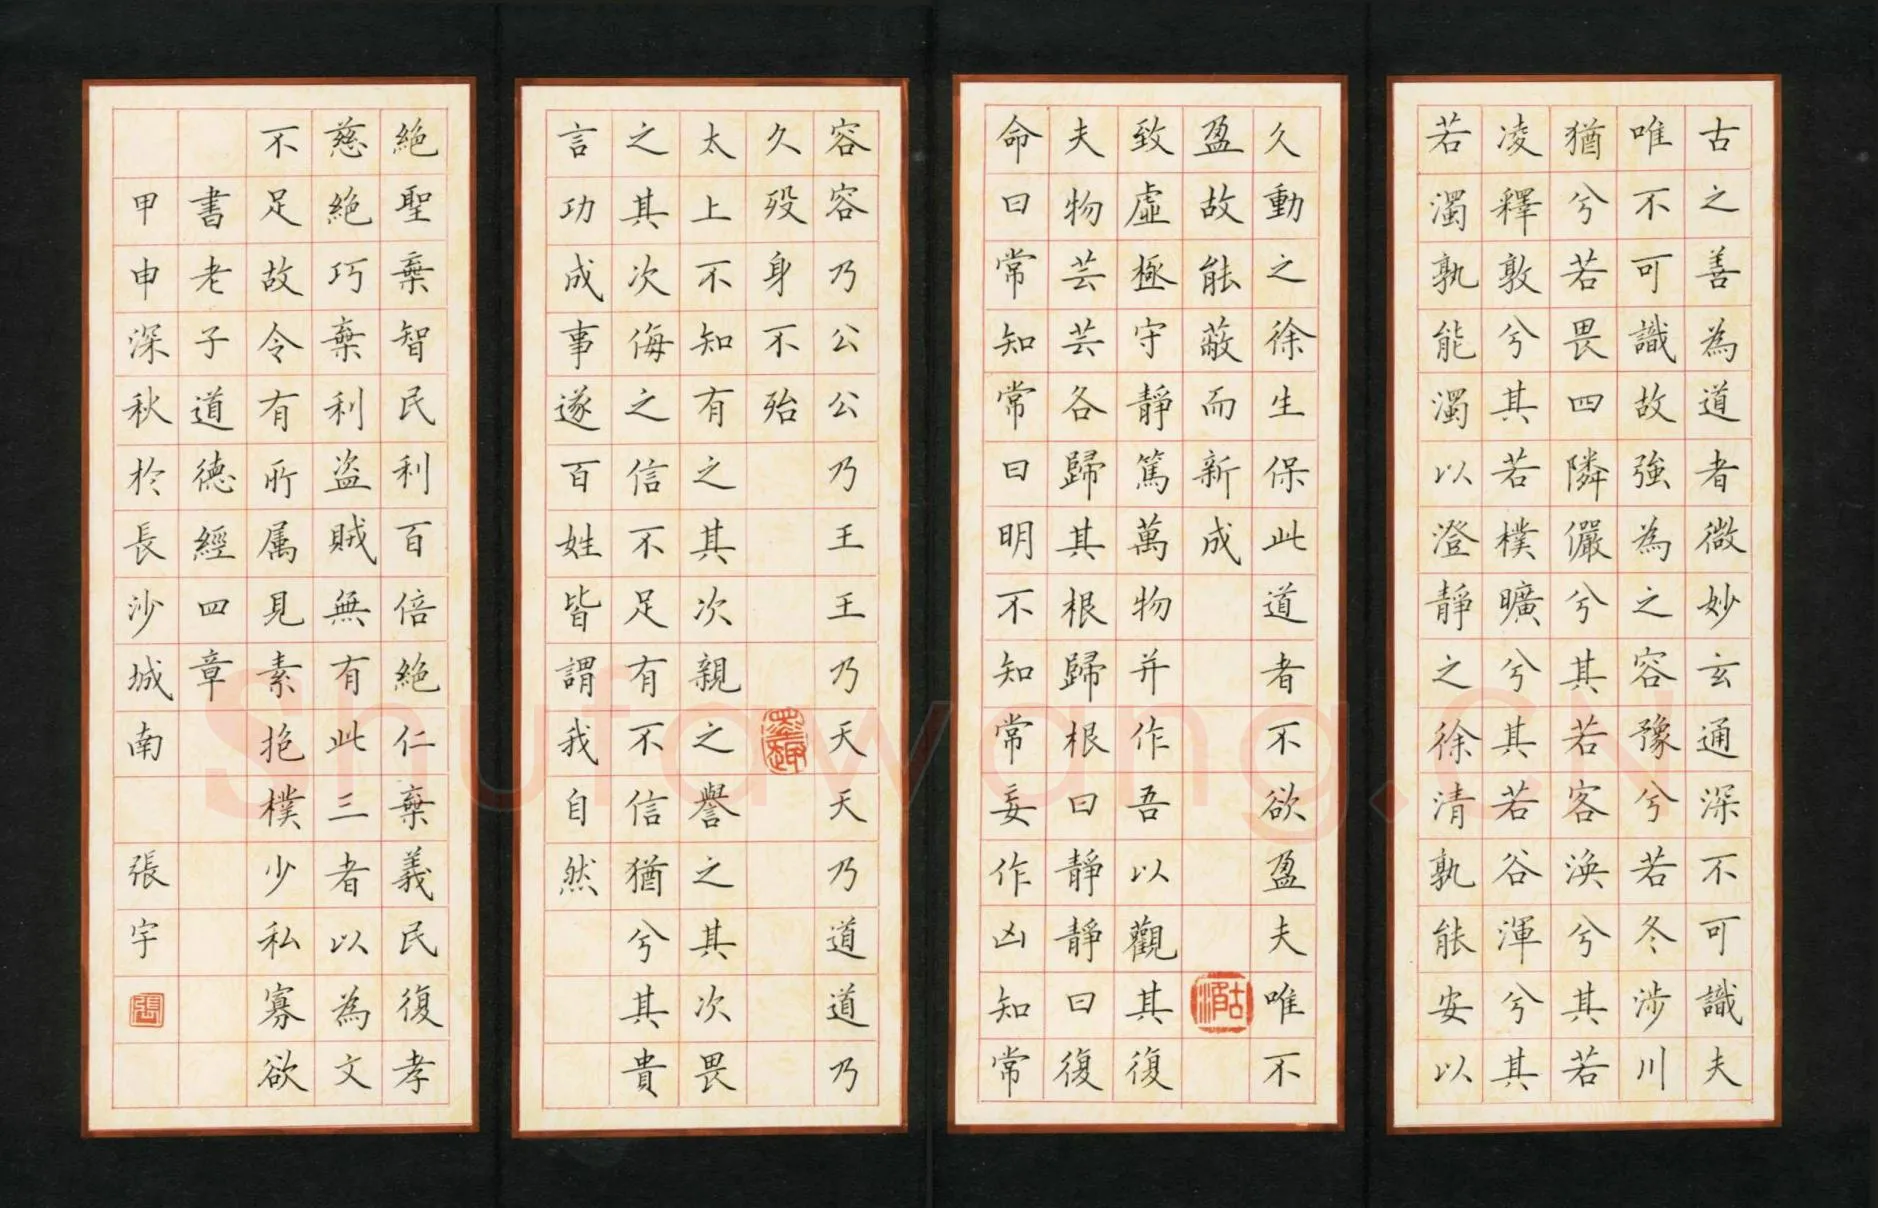 古之善為道者微妙玄通深不可識夫
唯不可識故強為之容豫兮若冬涉川
猶兮若畏四隣儼兮其若客渙兮其若
凌釋敦兮其若樸曠兮其若谷渾兮其
若濁孰能濁以澄靜之徐清孰能安以
久動之徐生保此道者不欲盈夫唯不
盈故能蔽而新成
致虛極守靜篤萬物并作吾以觀其復
夫物芸芸各歸其根歸根曰靜靜曰復
命曰常知常曰明不知常妄作凶知常
容容乃公公乃王王乃天天乃道道乃
久歿身不殆
墨趣
太上不知有之其次親之譽之其次畏
之其次侮之信不足有不信猶兮其貴
言功成事遂百姓皆謂我自然
絕聖棄智民利百倍絕仁棄義民復孝
慈絕巧棄利盜賊無有此三者以為文
不足故令有所属見素抱樸少私寡欲
書老子道德經四章
甲申深秋於長沙城南 張宇
張
Shufawang.CN